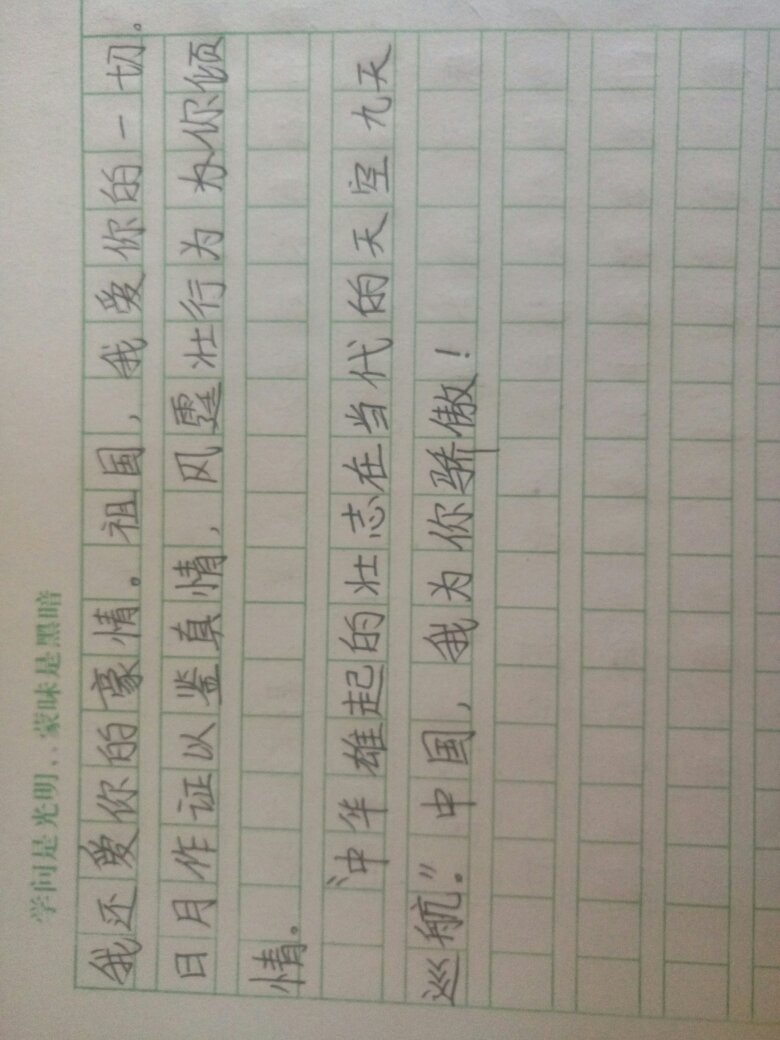 学问是光明，蒙昧是黑暗
我还爱你的豪情。祖国，我爱你的一切。
日月作证以鉴真情，风霆壮行为为你倾
情。
“中华雄起的壮志在当代的天空九天
巡航。”中国，我为你骄傲！